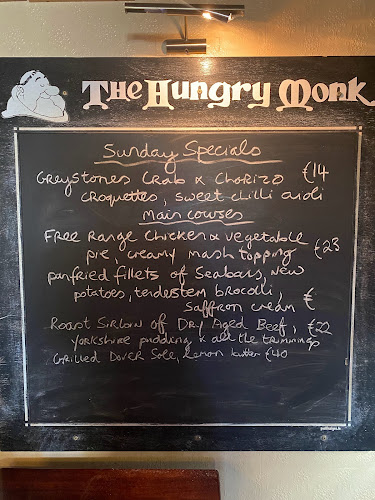 The Hungry Monk
Sunday Specials
Greystones Crab & Chorizo €14
croquettes, sweet chilli aioli
Main Courses
Free Range Chicken & vegetable
pie, creamy mash topping €23
panfried fillets of Seabass, new
potatoes, tenderstem brocolli,
Saffron cream €
Roast Sirloin of Dry Aged Beef, €22
Yorkshire pudding & all the trimmings
Grilled Dover Sole, lemon butter €40